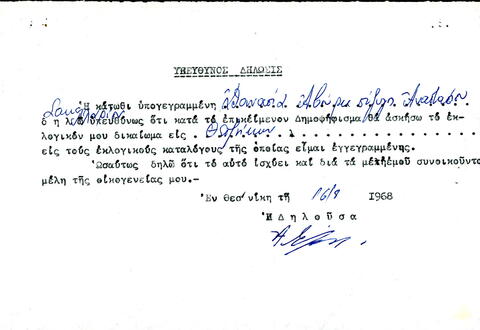 ΥΠΕΥΘΥΝΟΣ ΔΗΛΩΣΙΣ
Ἡ κάτωθι ὑπογεγραμμένη
δηλῶ ὑπευθύνως ὅτι κατά τό ἐπικείμενον Δημοψήφισμα θά ἀσκήσω τό ἐκ-
λογικόν μου δικαίωμα εἰς
εἰς τούς ἐκλογικούς καταλόγους τῆς ὁποίας εἶμαι ἐγγεγραμμένης.
Ὡσαύτως δηλῶ ὅτι τό αὐτό ἰσχύει καί διά τά συνοικοῦντα
μέλη τῆς οἰκογενείας μου.-
Ἐν Θεσ/νίκη τῇ 16/8 1968
Ἡ Δηλοῦσα